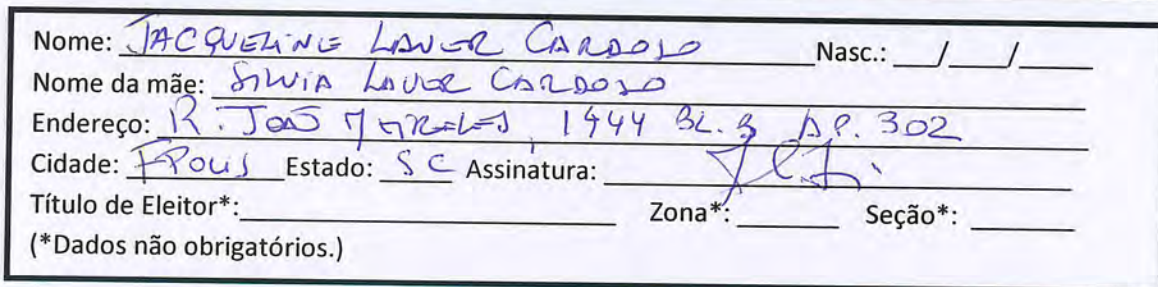 Nome: JACQUELINE LAUER CARDOSO Nasc.: __/__/__
Nome da mãe: SILVIA LAUER CARDOSO
Endereço: R. JOÃO MEIRELES, 1444 BL. B AP. 302
Cidade: FPOLIS Estado: SC Assinatura:
Título de Eleitor*: Zona*: Seção*:
(*Dados não obrigatórios.)